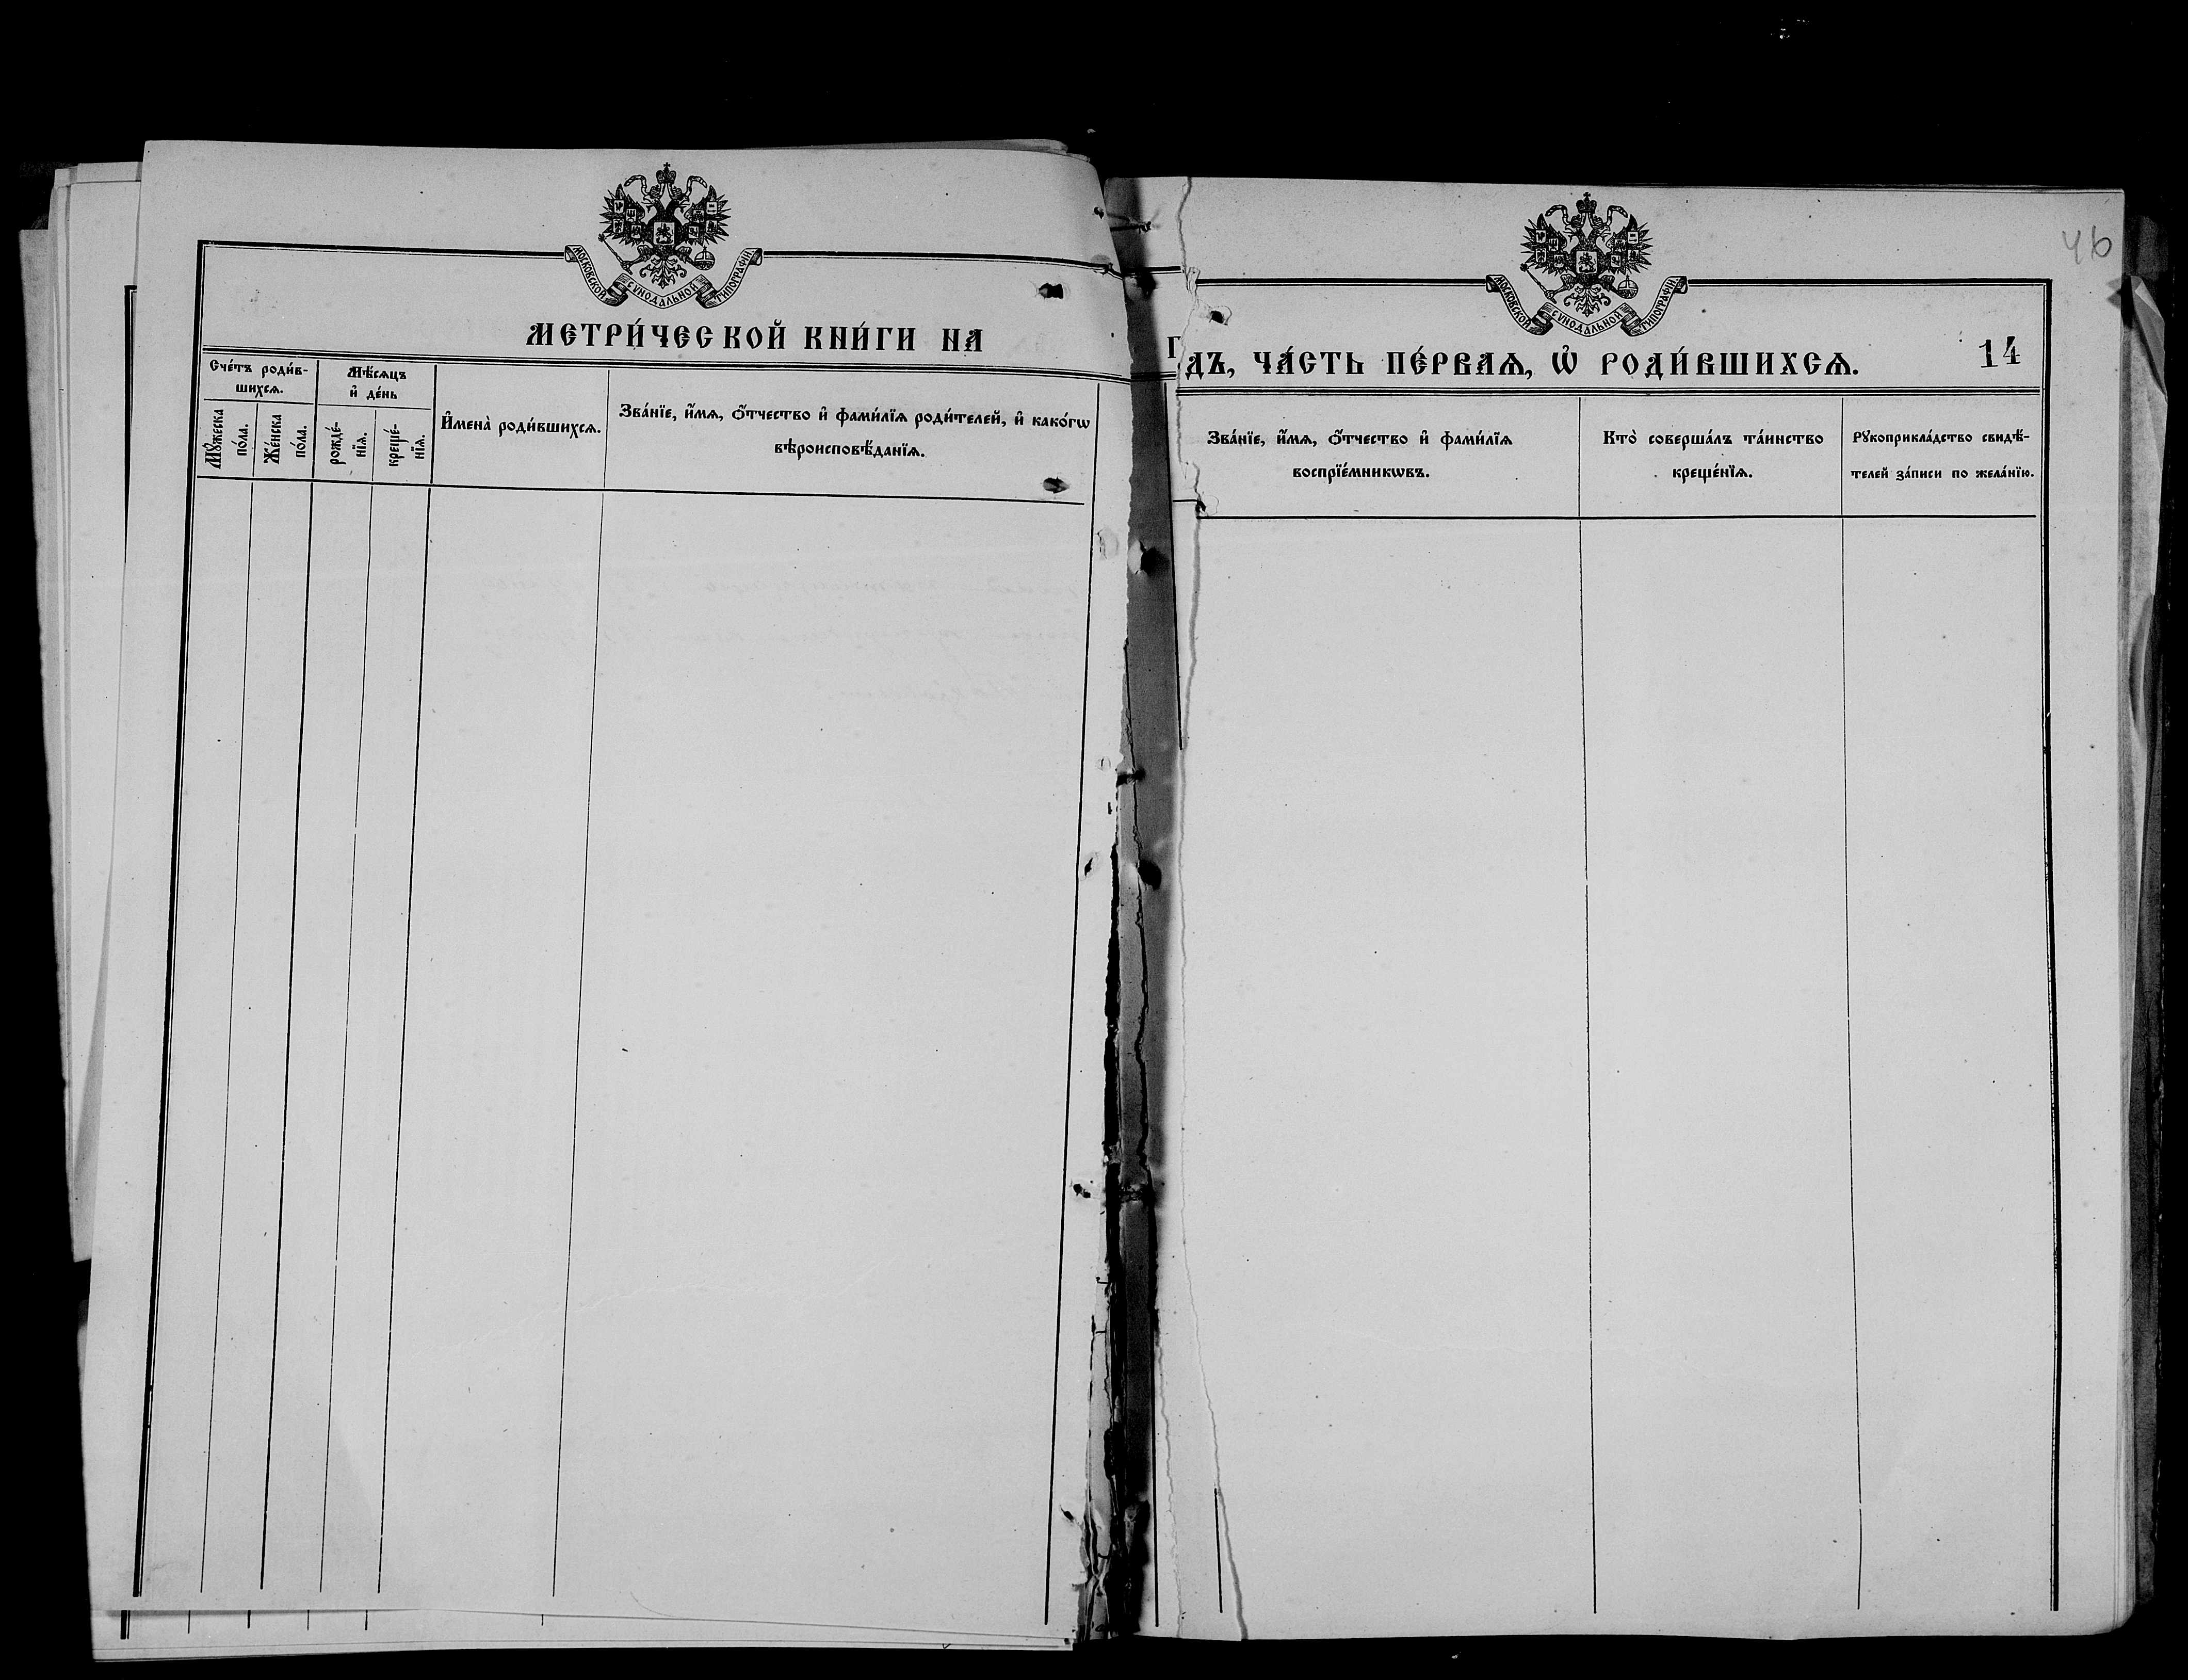 МОСКОВСКОЙ СѴНОДАЛЬНОЙ ТИПОГРАФІИ
МЕТРИ́ЧЕСКОЙ КНИ́ГИ НА
Сче́тъ роди́в-
шихсѧ.
Мꙋ́жеска
по́ла.
Же́нска
по́ла.
Мѣ́сѧцъ
и҆ де́нь
рожде́-
нїѧ.
креще́-
нїѧ.
И҆мена̀ роди́вшихсѧ.
Зва́нїе, и҆́мѧ, ѻ҆́тчество и҆ фами́лїѧ роди́телей, и҆ како́гѡ
вѣроисповѣ́данїѧ.
МОСКОВСКОЙ СѴНОДАЛЬНОЙ ТИПОГРАФІИ
46
Г ДЪ, ЧА́СТЬ ПЕ́РВАѦ, Ѡ҆ РОДИ́ВШИХСѦ.
14
Зва́нїе, и҆́мѧ, ѻ҆́тчество и҆ фами́лїѧ
воспрїе́мникѡвъ.
Кто̀ соверша́лъ та́инство
креще́нїѧ.
Рꙋкоприкла́дство свидѣ́-
телей за́писи по жела́нїю.